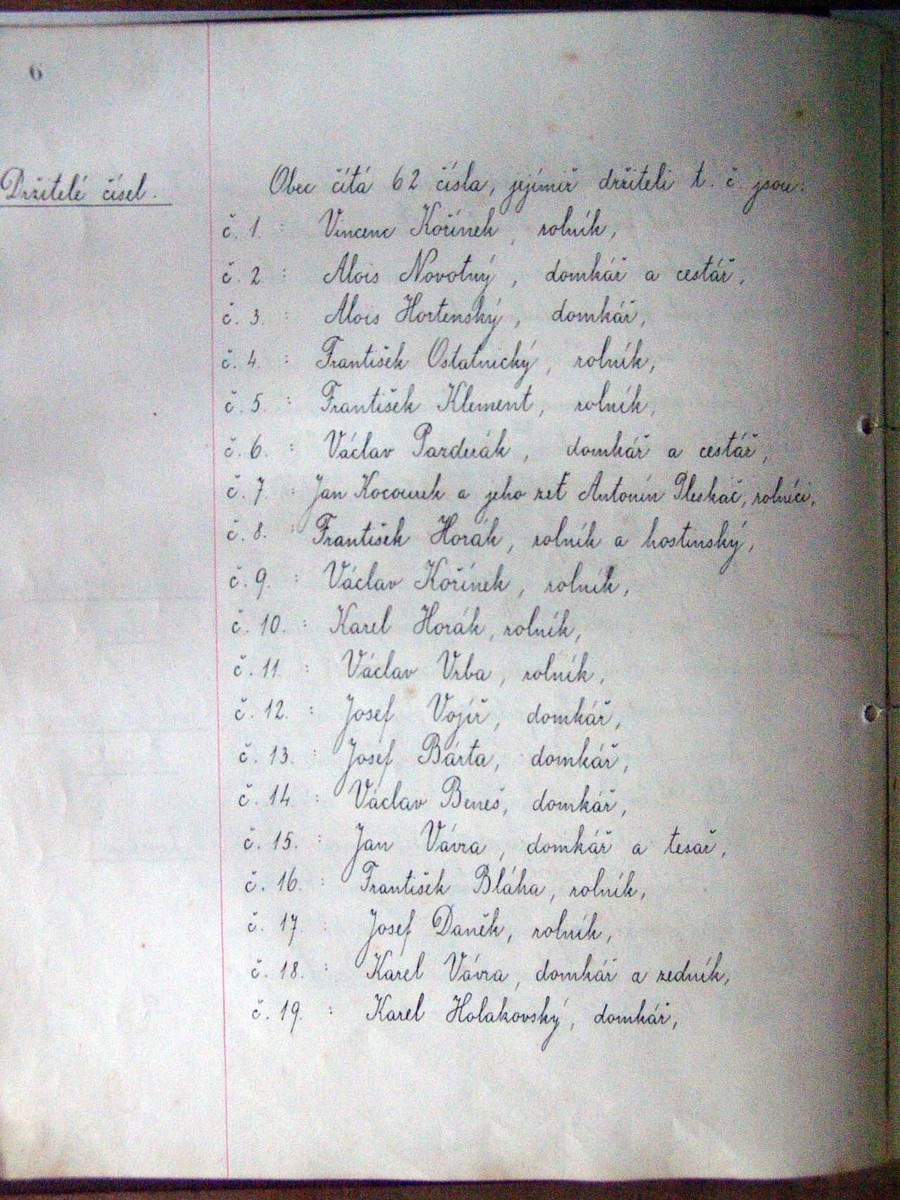 6
Držitelé čísel.
Obec čítá 62 čísla, jejímiž držiteli t. č. jsou:
č. 1. : Vincenc Kořínek, rolník,
č. 2 : Alois Novotný, domkář a cestář,
č. 3. : Alois Hortenský, domkář,
č. 4. : František Ostatnický, rolník,
č. 5. : František Klement, rolník,
č. 6. : Václav Pazderák, domkář a cestář,
č. 7. : Jan Kocourek a jeho zeť Antonín Pleskač, rolníci,
č. 8. : František Horák, rolník a hostinský,
č. 9. : Václav Kořínek, rolník,
č. 10. : Karel Horák, rolník,
č. 11. : Václav Vrba, rolník,
č. 12. : Josef Vojíř, domkář,
č. 13. : Josef Bárta, domkář,
č. 14. : Václav Beneš, domkář,
č. 15. : Jan Vávra, domkář a tesař,
č. 16. : František Bláha, rolník,
č. 17. : Josef Daněk, rolník,
č. 18. : Karel Vávra, domkář a zedník,
č. 19. : Karel Holakovský, domkář,